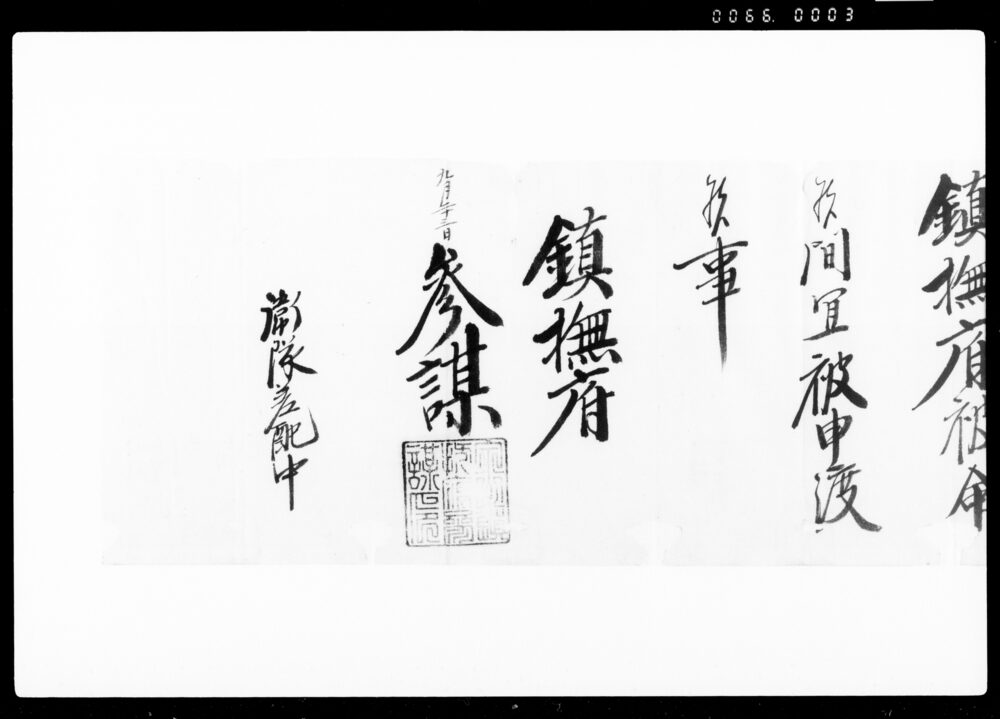 0066. 0003
鎮撫府被命
候間宜被申渡
候事
鎮撫府
九月廿三日
参謀
衛隊差配中